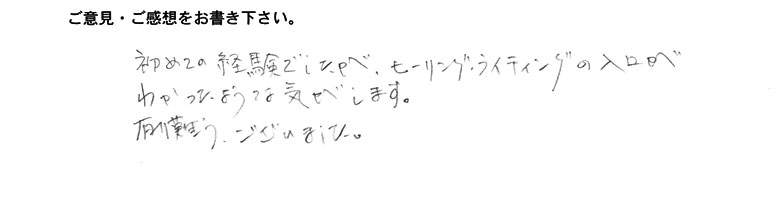 ご意見・ご感想をお書き下さい。
初めての経験でしたが、ヒーリング・ライティングの入口が
わかったような気がします。
有難う、ございました。